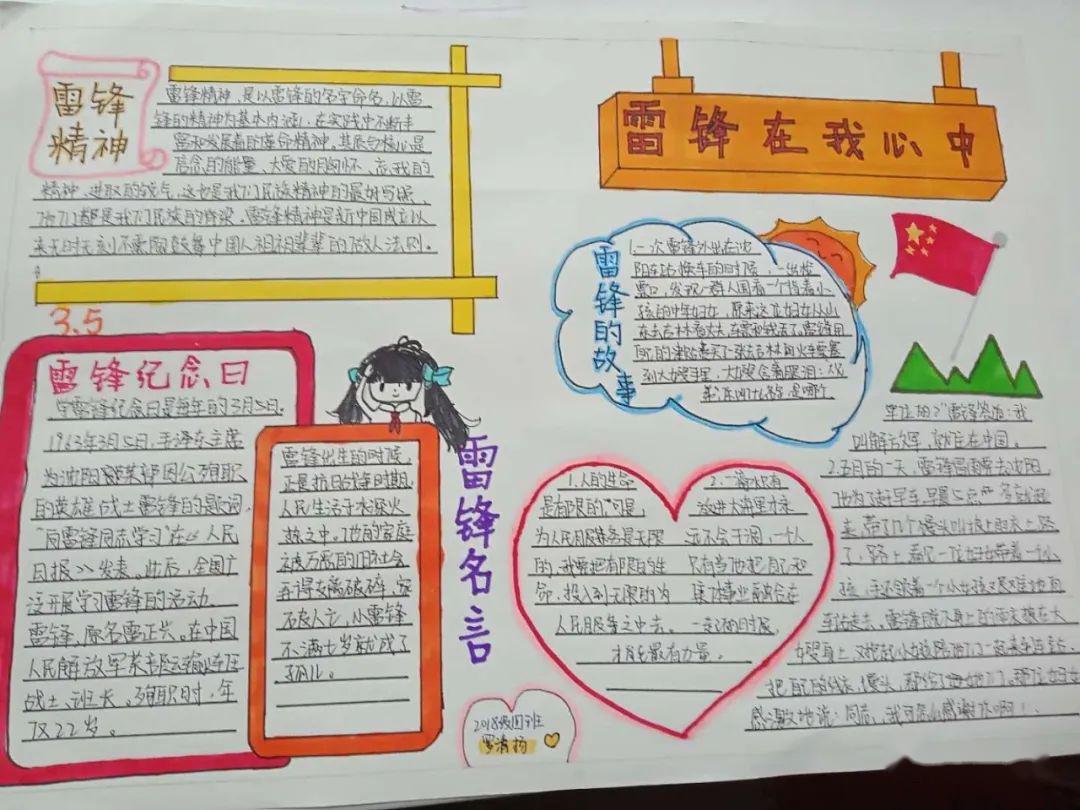 雷锋在我心中
雷锋
精神
雷锋精神，是以雷锋的名字命名，以雷
锋的精神为基本内涵，在实践中不断丰
富和发展着的革命精神，其质的核心是
信念的能量、大爱的胸怀、忘我的
精神、进取的锐气，这也是我们民族精神的最好写照，
他们都是我们民族的脊梁。雷锋精神是新中国成立以
来无时无刻不震陶鼓舞中国人祖祖辈辈的做人法则。
3.5
雷锋纪念日
学雷锋纪念日是每年的3月5日。
1963年3月5日，毛泽东主席
为沈阳部因公殉职
的英雄战士雷锋的题词
向雷锋同志学习"在《人民
日报》发表。此后，全国广
泛开展学习雷锋的活动。
雷锋，原名雷正兴，在中国
人民解放军某部运输连任
战士、班长。殉职时，年
仅22岁。
雷锋出生的时候，
正是抗日战争时期，
人民生活于水深火
热之中。他的家庭
被万恶的旧社会
弄得支离破碎，家
破人亡，小雷锋
不满七岁就成了
孤儿。
雷锋名言
1.人的生命
是有限的，可是，
为人民服务是无限
的，我要把有限的生
命，投入到无限的为
人民服务之中去。
2.一滴水只有
放进大海里才永
远不会干涸，一个人
只有当他把自己和
集体事业融合在
一起的时候，
才能最有力量。
雷锋的故事
1.一次雷锋外出在沈
阳车站换车的时候，一出检
票口，发现一群人围着一个背着小
孩的中年妇女，原来这位妇女从山
东去吉林看丈夫，车票和钱丢了。雷锋用
自己的津贴费买了一张去吉林的火车票塞
到大嫂手里，大嫂含着眼泪说：大兄
弟，你叫什么名字，是哪个
单位的？"雷锋答道：我
叫解放军，就住在中国。
2.五月的一天，雷锋冒雨要去沈阳，
他为了赶早车，早晨5点多就起
来，带了几个馒头叫披上雨衣上路
了，路上，看见一位妇女带着一个小
孩，手还领着一个小女孩艰难地向
车站走去。雷锋脱下身上的雨衣披在大
嫂身上，又抱起小女孩陪他们一起来车站
把自己的线衣、馒头，都给了她们。那位妇女
感激地说：同志，我可怎么感谢你啊！
2018级四班
罗清扬